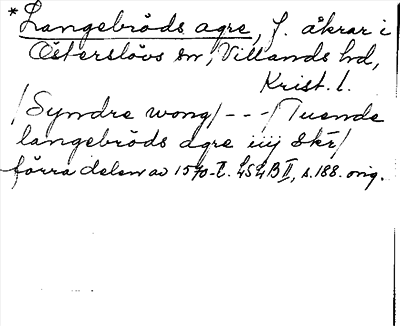 * Langebröds agre, f. åkrar i
Österslövs sn, Villands hd,
Krist. l.
/Syndre wong/ - - - /Tuende
langebröds agre iiij Skr/
förra delen av 1570-t. LSLB II, s. 188. orig.